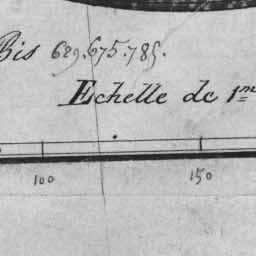 Bis 629.675.785.
Echelle de 1m
100 150